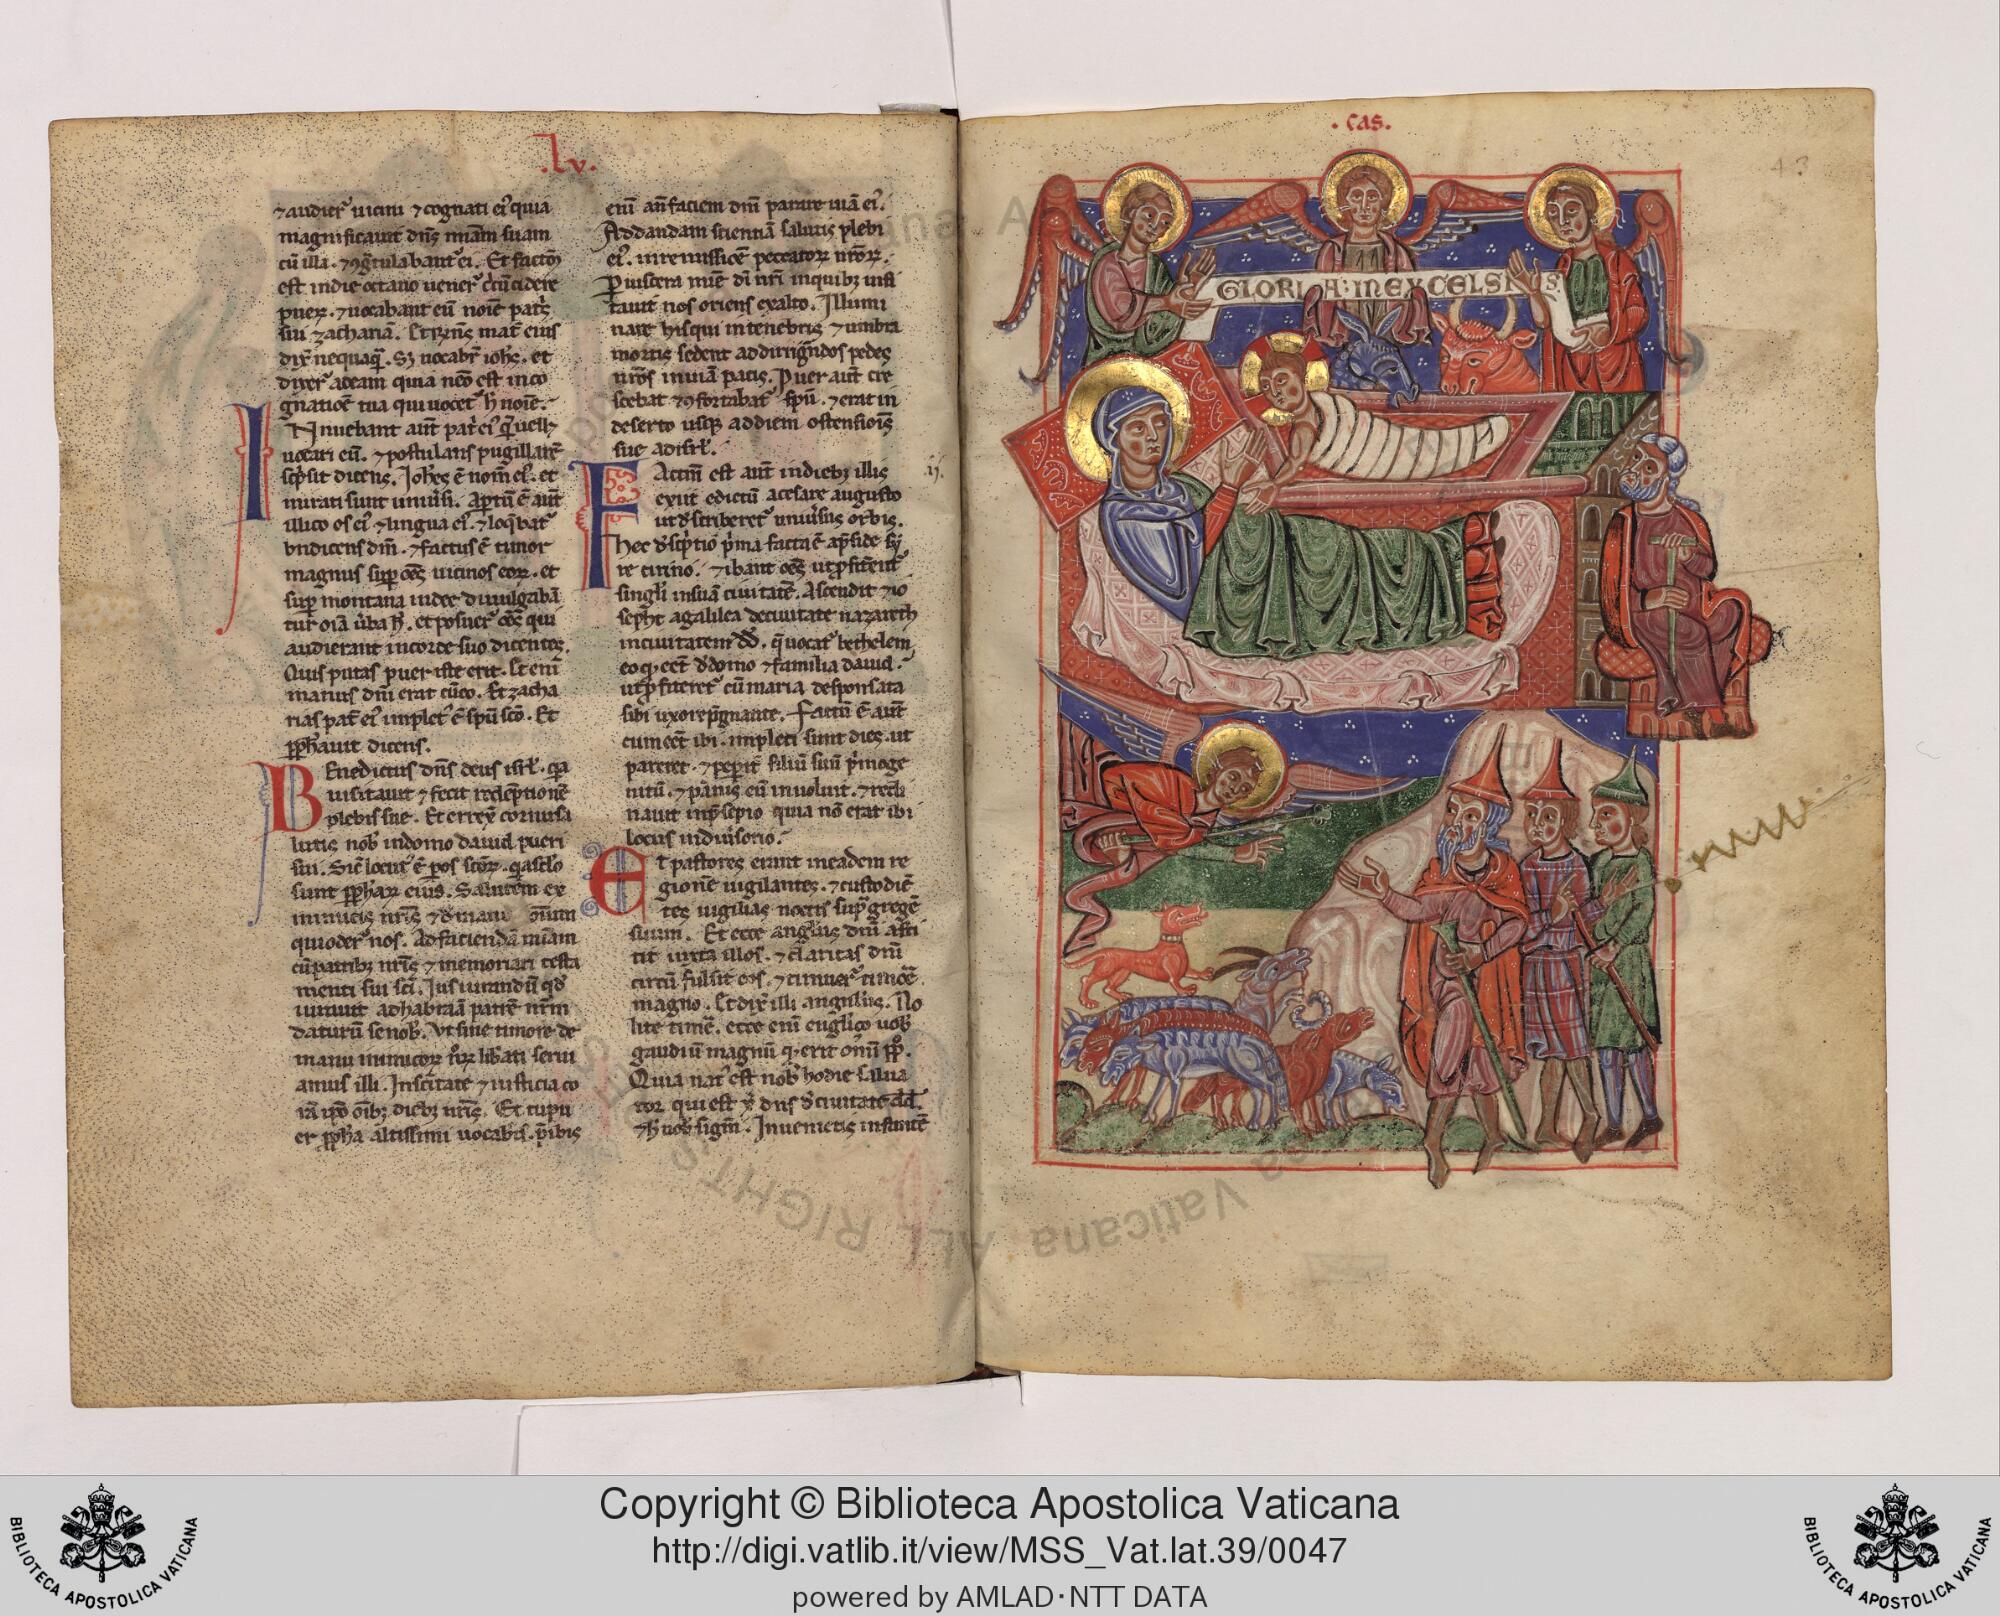 .lv.
⁊ audier̄ uicini ⁊ cognati ei᾽ quia
magnificauit dn̄s miām suam
cū illa. ⁊ ꝯg̃tulabant̄ ei. Et factū
est in die octauo uener̄ c̃cūcidere
pueꝝ. ⁊ uocabant eū noīe patͥs
sui zachariā. Et rn̄s mat̄ eius
dix̄ nequaq̄. Sꝫ uocabit̄ ioh̄s. et
dixer̄ ad eam quia nēo est in co
gnatiōe tua qui uocet̄ h̄ noīe.
INnuebant aūt pat̄ ei᾽ q̄ uellꝫ
uocari eū. ⁊ postulans pugillarē
sc̄psit dicens. Joh̄es ē nom̄ ei᾽. et
mirati sunt uniu̾si. Aꝑtū ē aūt
illico os ei᾽ ⁊ lingua ei᾽ ⁊ loq̄bat̄
bn̄dicens dm̄. ⁊ factus ē timor
magnus suꝑ oēs uicinos eoꝝ. et
suꝑ montana iudee diuulgabā
tur oīa u̾ba h̄. et posuer̄ oēs qui
audierant in corde suo dicentes.
Quis putas puer iste erit. Et enī
manus dn̄i erat cū eo. Et zacha
rias pat̄ ei᾽ implet᾽ ē spū sc̄o. Et
ꝓph̄auit dicens.
Benedictus dn̄s deus isrl̄. q̄a
uisitauit ⁊ fecit redēptionē
plebis sue. Et erexͭ cornu sa
lutis nob̄ in domo dauid pueri
sui. Sic̄ locut᾽ ē ꝑ os sc̄oꝝ. q̄ a sc̄lo
sunt ꝓph̄aꝝ eius. Salutēm ex
inimicis nr̄is ⁊ de manu oīum
qui oder̄ nos. Ad faciendā miām
cū patribꝫ nr̄is ⁊ memorari testa
menti sui sc̄i. Jus iurandū qd̄
iurauit ad habraā patrē nr̄m
daturū se nob̄. Vt sine timore de
manu inimicoꝝ nr̄oꝝ lib̄ati serui
amus illi. In sc̄itate ⁊ iusticia co
rā ip̄o oīb̄ꝫ diebꝫ nr̄is. Et tu pu
er ꝓph̄a altissimi uocab̄is. p̄ibis
enī an̄ faciem dn̄i parare uiā ei᾽.
Ad dandam scientiā salutis plebi
ei᾽. in remissiōē peccatoꝝ nr̄oꝝ.
P uiscera mīe dī nr̄i in quibꝫ uisi
tauit nos oriens ex alto. Illumi
nare his qui in tenebris ⁊ umbra
mortis sedent ad dirig̃ndos pedes
nr̄os in uiā pacis. Puer aūt cre
scebat ⁊ ꝯfortabat̄ spū. ⁊ erat in
deserto usq̄ ad diem ostensiōis
sue ad isrl̄.
.ij.
Factum est aūt in diebꝫ illis
exiit edictū a cesare augusto
ut d̾scriberet̄ uniu̾sus orbis.
hec d̾sc̄ptio p̄ma facta ē a p̄side sy
rie cirino. ⁊ ibant oēs ut ꝓfitēnt̄
singl̄i in suā ciuitatē. Ascendit ⁊ io
seph̄ a galilea de ciuitate nazareth
in ciuitatem dd̄. q̄ uocat̄ bethelem,
eo qͥ eēt d̾ domo ⁊ familia dauid.
ut ꝓfiteret̄ cū maria desponsata
sibi uxore p̄gnante. Factū ē aūt
cum eēt ibi. impleti sunt dies. ut
pareret. ⁊ peꝑit filiū suū p̄moge
nitū. ⁊ pānis eū inuoluit. ⁊ recli
nauit in p̄sepio quia nō erat ibi
locus in diu̾sorio.
Et pastores erant in eadem re
gionē uigilantes. ⁊ custodiē
tes uigilias noctis sup̄ gregē
suum. Et ecce angl̄us dn̄i asti
tit iuxta illos. ⁊ claritas dn̄i
circū fulsit eos. ⁊ timuer̄ timōē
magno. Et dix̄ illi angelus. No
lite timē. ecce enī euglīco uob̄
gaudiū magnū qͥ erit omī pp̄lo.
Quia nat᾽ est nob̄ hodie salua
tor qui est xp̄ dn̄s d̾ ciuitate dd̄.
⁊ h̄ uob̄ signū. Inuenietis infantē
.cas.
43
GLORIA: IN EXCELSIS
Copyright © Biblioteca Apostolica Vaticana
http://digi.vatlib.it/view/MSS_Vat.lat.39/0047
powered by AMLAD·NTT DATA
BIBLIOTECA APOSTOLICA VATICANA
BIBLIOTECA APOSTOLICA VATICANA